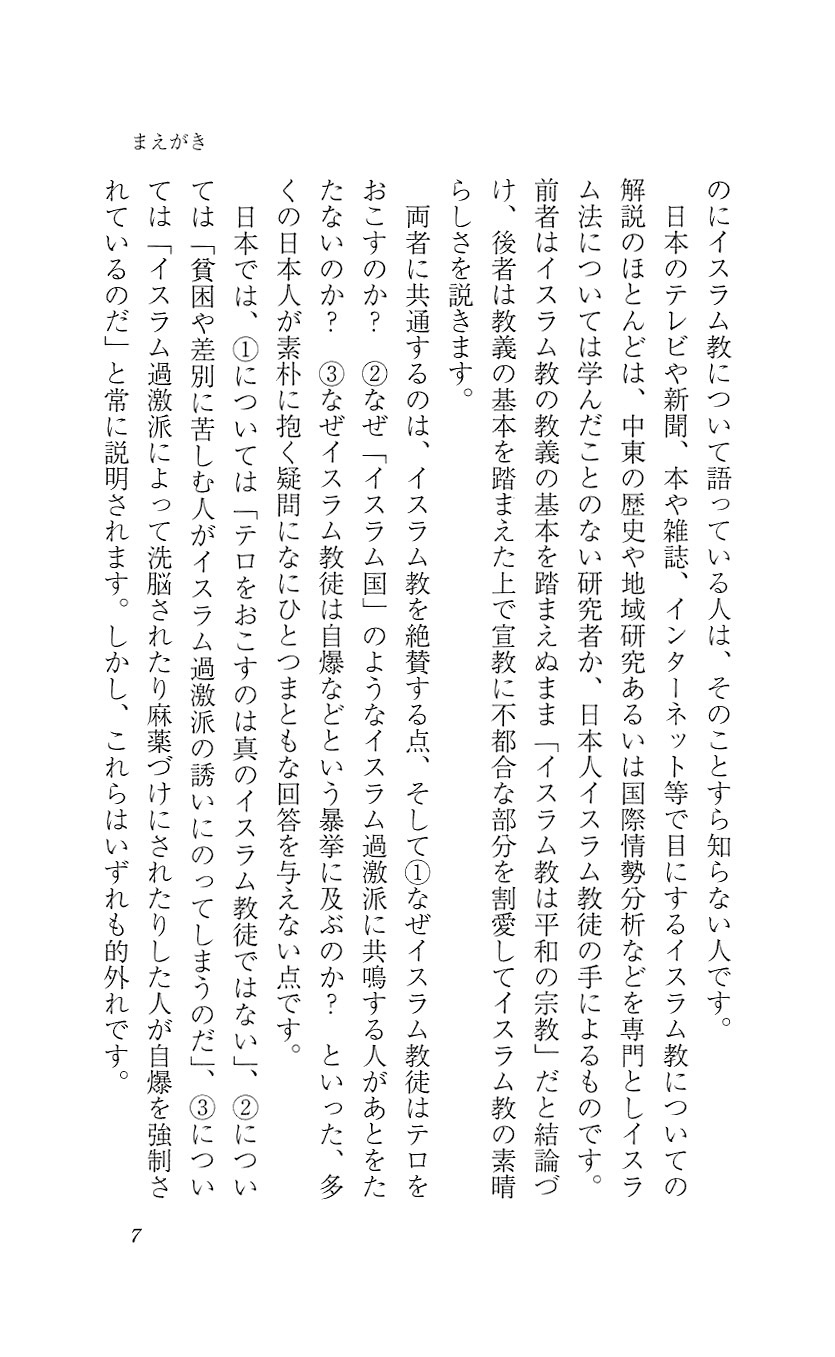 まえがき
のにイスラム教について語っている人は、そのことすら知らない人です。
日本のテレビや新聞、本や雑誌、インターネット等で目にするイスラム教についての
解説のほとんどは、中東の歴史や地域研究あるいは国際情勢分析などを専門としイスラ
ム法については学んだことのない研究者か、日本人イスラム教徒の手によるものです。
前者はイスラム教の教義の基本を踏まえぬまま「イスラム教は平和の宗教」だと結論づ
け、後者は教義の基本を踏まえた上で宣教に不都合な部分を割愛してイスラム教の素晴
らしさを説きます。
両者に共通するのは、イスラム教を絶賛する点、そして①なぜイスラム教徒はテロを
おこすのか？　②なぜ「イスラム国」のようなイスラム過激派に共鳴する人があとをた
たないのか？　③なぜイスラム教徒は自爆などという暴挙に及ぶのか？　といった、多
くの日本人が素朴に抱く疑問になにひとつまともな回答を与えない点です。
日本では、①については「テロをおこすのは真のイスラム教徒ではない」、②につい
ては「貧困や差別に苦しむ人がイスラム過激派の誘いにのってしまうのだ」、③につい
ては「イスラム過激派によって洗脳されたり麻薬づけにされたりした人が自爆を強制さ
れているのだ」と常に説明されます。しかし、これらはいずれも的外れです。
7